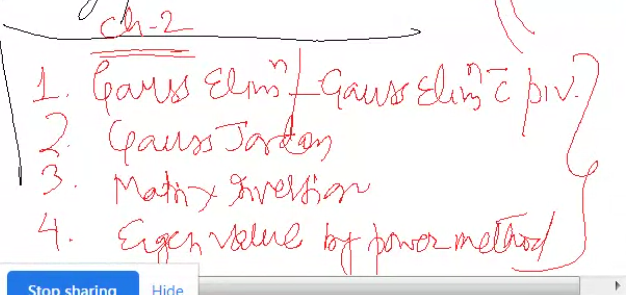 Ch-2
1. Gauss Elimⁿ / Gauss Elimⁿ c̄ piv.
2. Gauss Jordan
3. Matrix Inversion
4. Eigen value by power method
Stop sharing Hide